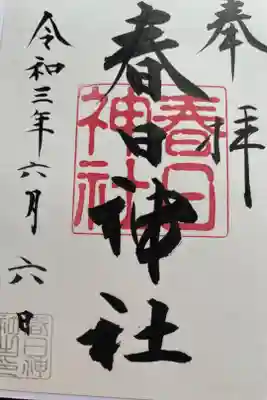 奉拝
春日神社
春日
神社
令和三年六月六日